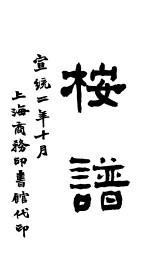 桉譜
宣統二年十月
上海商務印書館代印